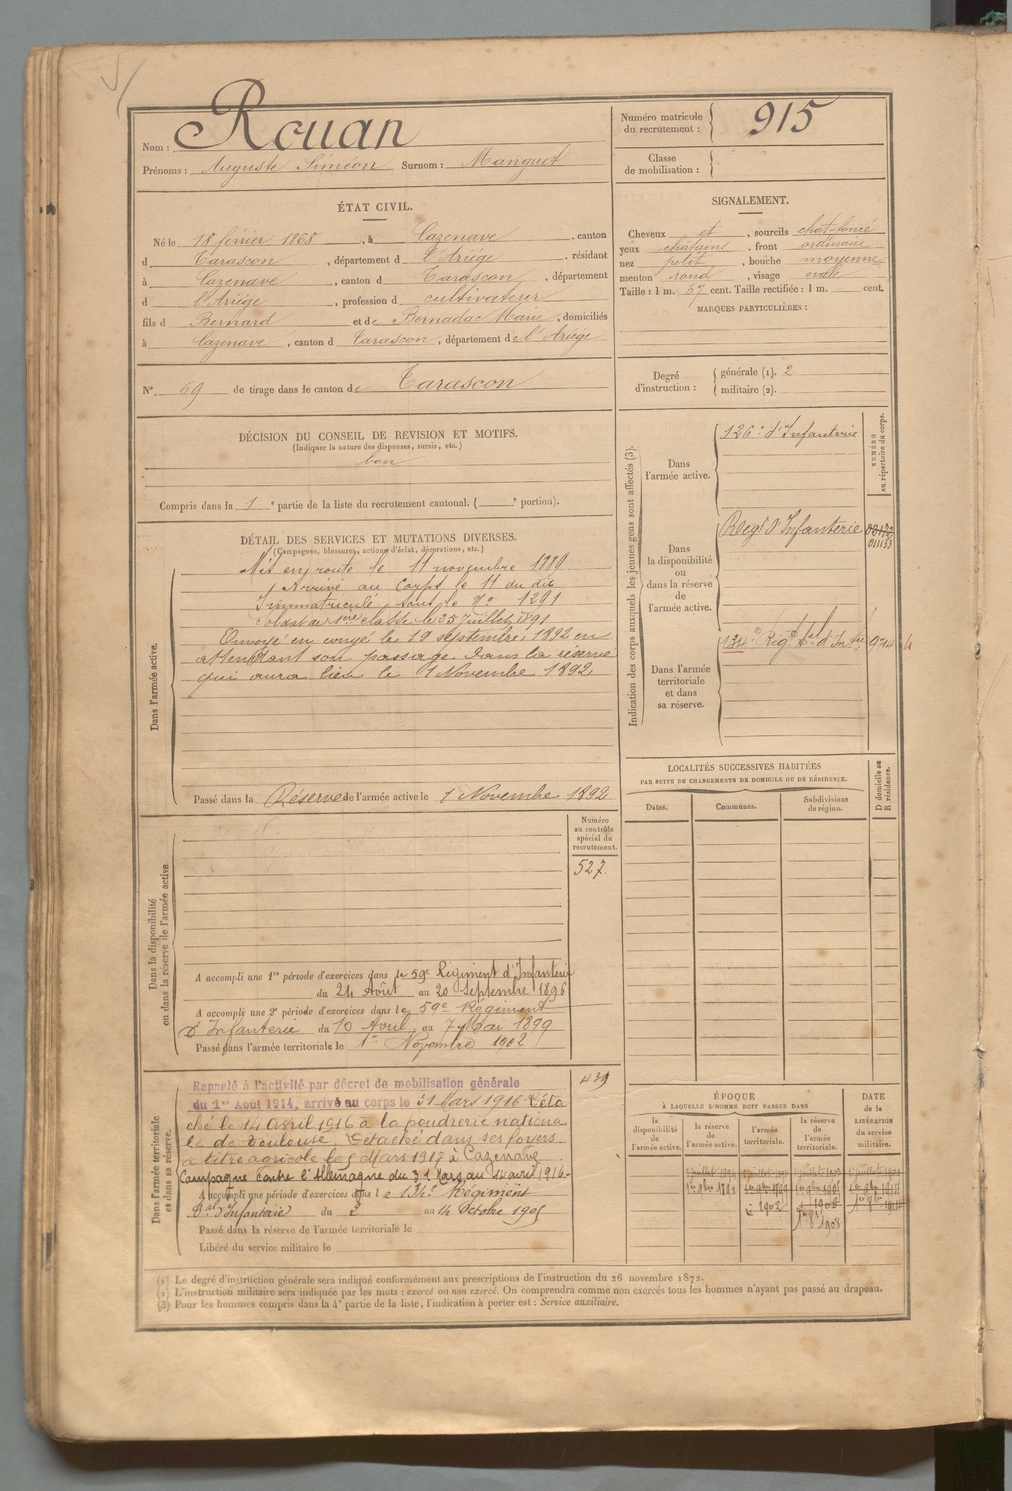 Nom : Rouan
Prénoms : Auguste Siméon Surnom : Manguet
Numéro matricule du recrutement : 915
Classe de mobilisation :
ÉTAT CIVIL.
Né le 18 février 1868, à Cazenave, canton
d Tarascon, département d l'Ariége, résidant
à Cazenave, canton d Tarascon, département
d l'Ariége, profession d cultivateur
fils d Bernard et de Bernadac Marie, domiciliés
à Cazenave, canton d Tarascon, département de l'Ariége
N° 69 de tirage dans le canton de Tarascon
SIGNALEMENT.
Cheveux et, sourcils chat-foncé
yeux châtains, front ordinaire
nez petit, bouche moyenne
menton rond, visage ovale
Taille : 1 m. 67 cent. Taille rectifiée : 1 m. cent.
MARQUES PARTICULIÈRES :
Degré d'instruction : générale (1). 2
militaire (2).
DÉCISION DU CONSEIL DE REVISION ET MOTIFS.
(Indiquer la nature des dispenses, sursis, etc.)
bon
Compris dans la 1e partie de la liste du recrutement cantonal. ( e portion).
DÉTAIL DES SERVICES ET MUTATIONS DIVERSES.
(Campagnes, blessures, actions d'éclat, décorations, etc.)
Dans l'armée active.
Mis en route le 11 novembre 1889
Arrivé au Corps le 11 du dit
Immatriculé sous le N° 1291
Soldat de 1ère classe le 25 juillet 1891
Envoyé en congé le 19 septembre 1892 en
attendant son passage dans la réserve
qui aura lieu le 1 Novembre 1892
Passé dans la Réserve de l'armée active le 1 Novembre 1892
Indication des corps auxquels les jeunes gens sont affectés (3).
NUMÉRO au répertoire du corps.
Dans l'armée active.
126e d'Infanterie
Dans la disponibilité ou dans la réserve de l'armée active.
Regt d'Infanterie
01133
Dans l'armée territoriale et dans sa réserve.
134e Regt tal d'Inftie
LOCALITÉS SUCCESSIVES HABITÉES
PAR SUITE DE CHANGEMENTS DE DOMICILE OU DE RÉSIDENCE.
D domicile ou R résidence.
Dates. Communes. Subdivisions de région.
Dans la disponibilité ou dans la réserve de l'armée active.
Numéro au contrôle spécial du recrutement.
527.
A accompli une 1re période d'exercices dans le 59e Régiment d'Infanterie
du 24 Août au 20 Septembre 1896
A accompli une 2e période d'exercices dans le 59e Régiment
d'Infanterie du 10 Avril au 7 Mai 1899
Passé dans l'armée territoriale le 1er Novembre 1902
Dans l'armée territoriale et dans sa réserve.
439
Rappelé à l'activité par décret de mobilisation générale
du 1er Août 1914, arrivé au corps le 31 Mars 1916 Déta
ché le 14 avril 1916 à la poudrerie nationa
le de Toulouse. Détaché dans ses foyers
à titre agricole le 5 Mars 1917 à Cazenave
Campagne contre l'Allemagne du 31 Mars au 14 avril 1916-
A accompli une période d'exercices dans le 134e Régiment
tal d'Infanterie du 2 au 14 Octobre 1905
Passé dans la réserve de l'armée territoriale le
Libéré du service militaire le
ÉPOQUE
À LAQUELLE L'HOMME DOIT PASSER DANS
la disponibilité de l'armée active.
la réserve de l'armée active.
l'armée territoriale.
la réserve de l'armée territoriale.
DATE de la LIBÉRATION du service militaire.
1902
1908
(1) Le degré d'instruction générale sera indiqué conformément aux prescriptions de l'instruction du 26 novembre 1872.
(2) L'instruction militaire sera indiquée par les mots : exercé ou non exercé. On comprendra comme non exercés tous les hommes n'ayant pas passé au drapeau.
(3) Pour les hommes compris dans la 4e partie de la liste, l'indication à porter est : Service auxiliaire.